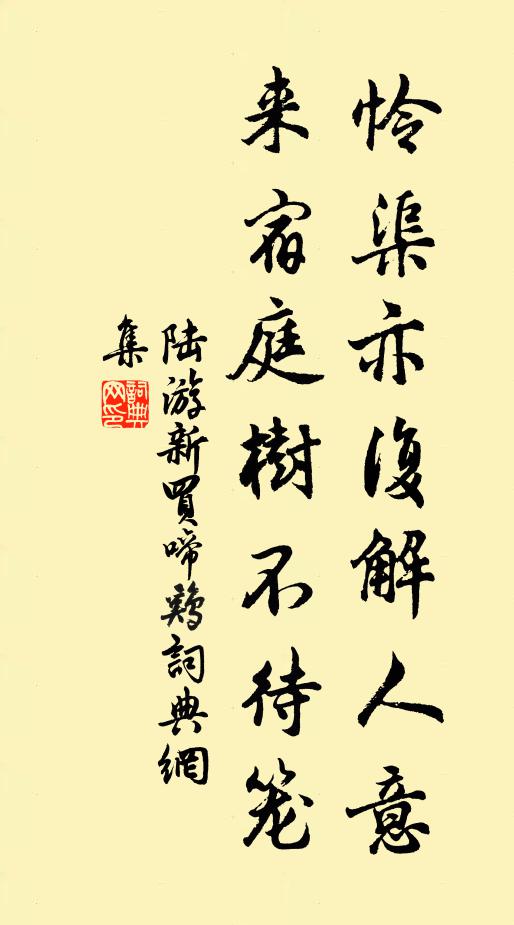 怜渠亦復解人意
来宿庭樹不待笼
陆游新買啼鷄詞典網
集
詞典網印